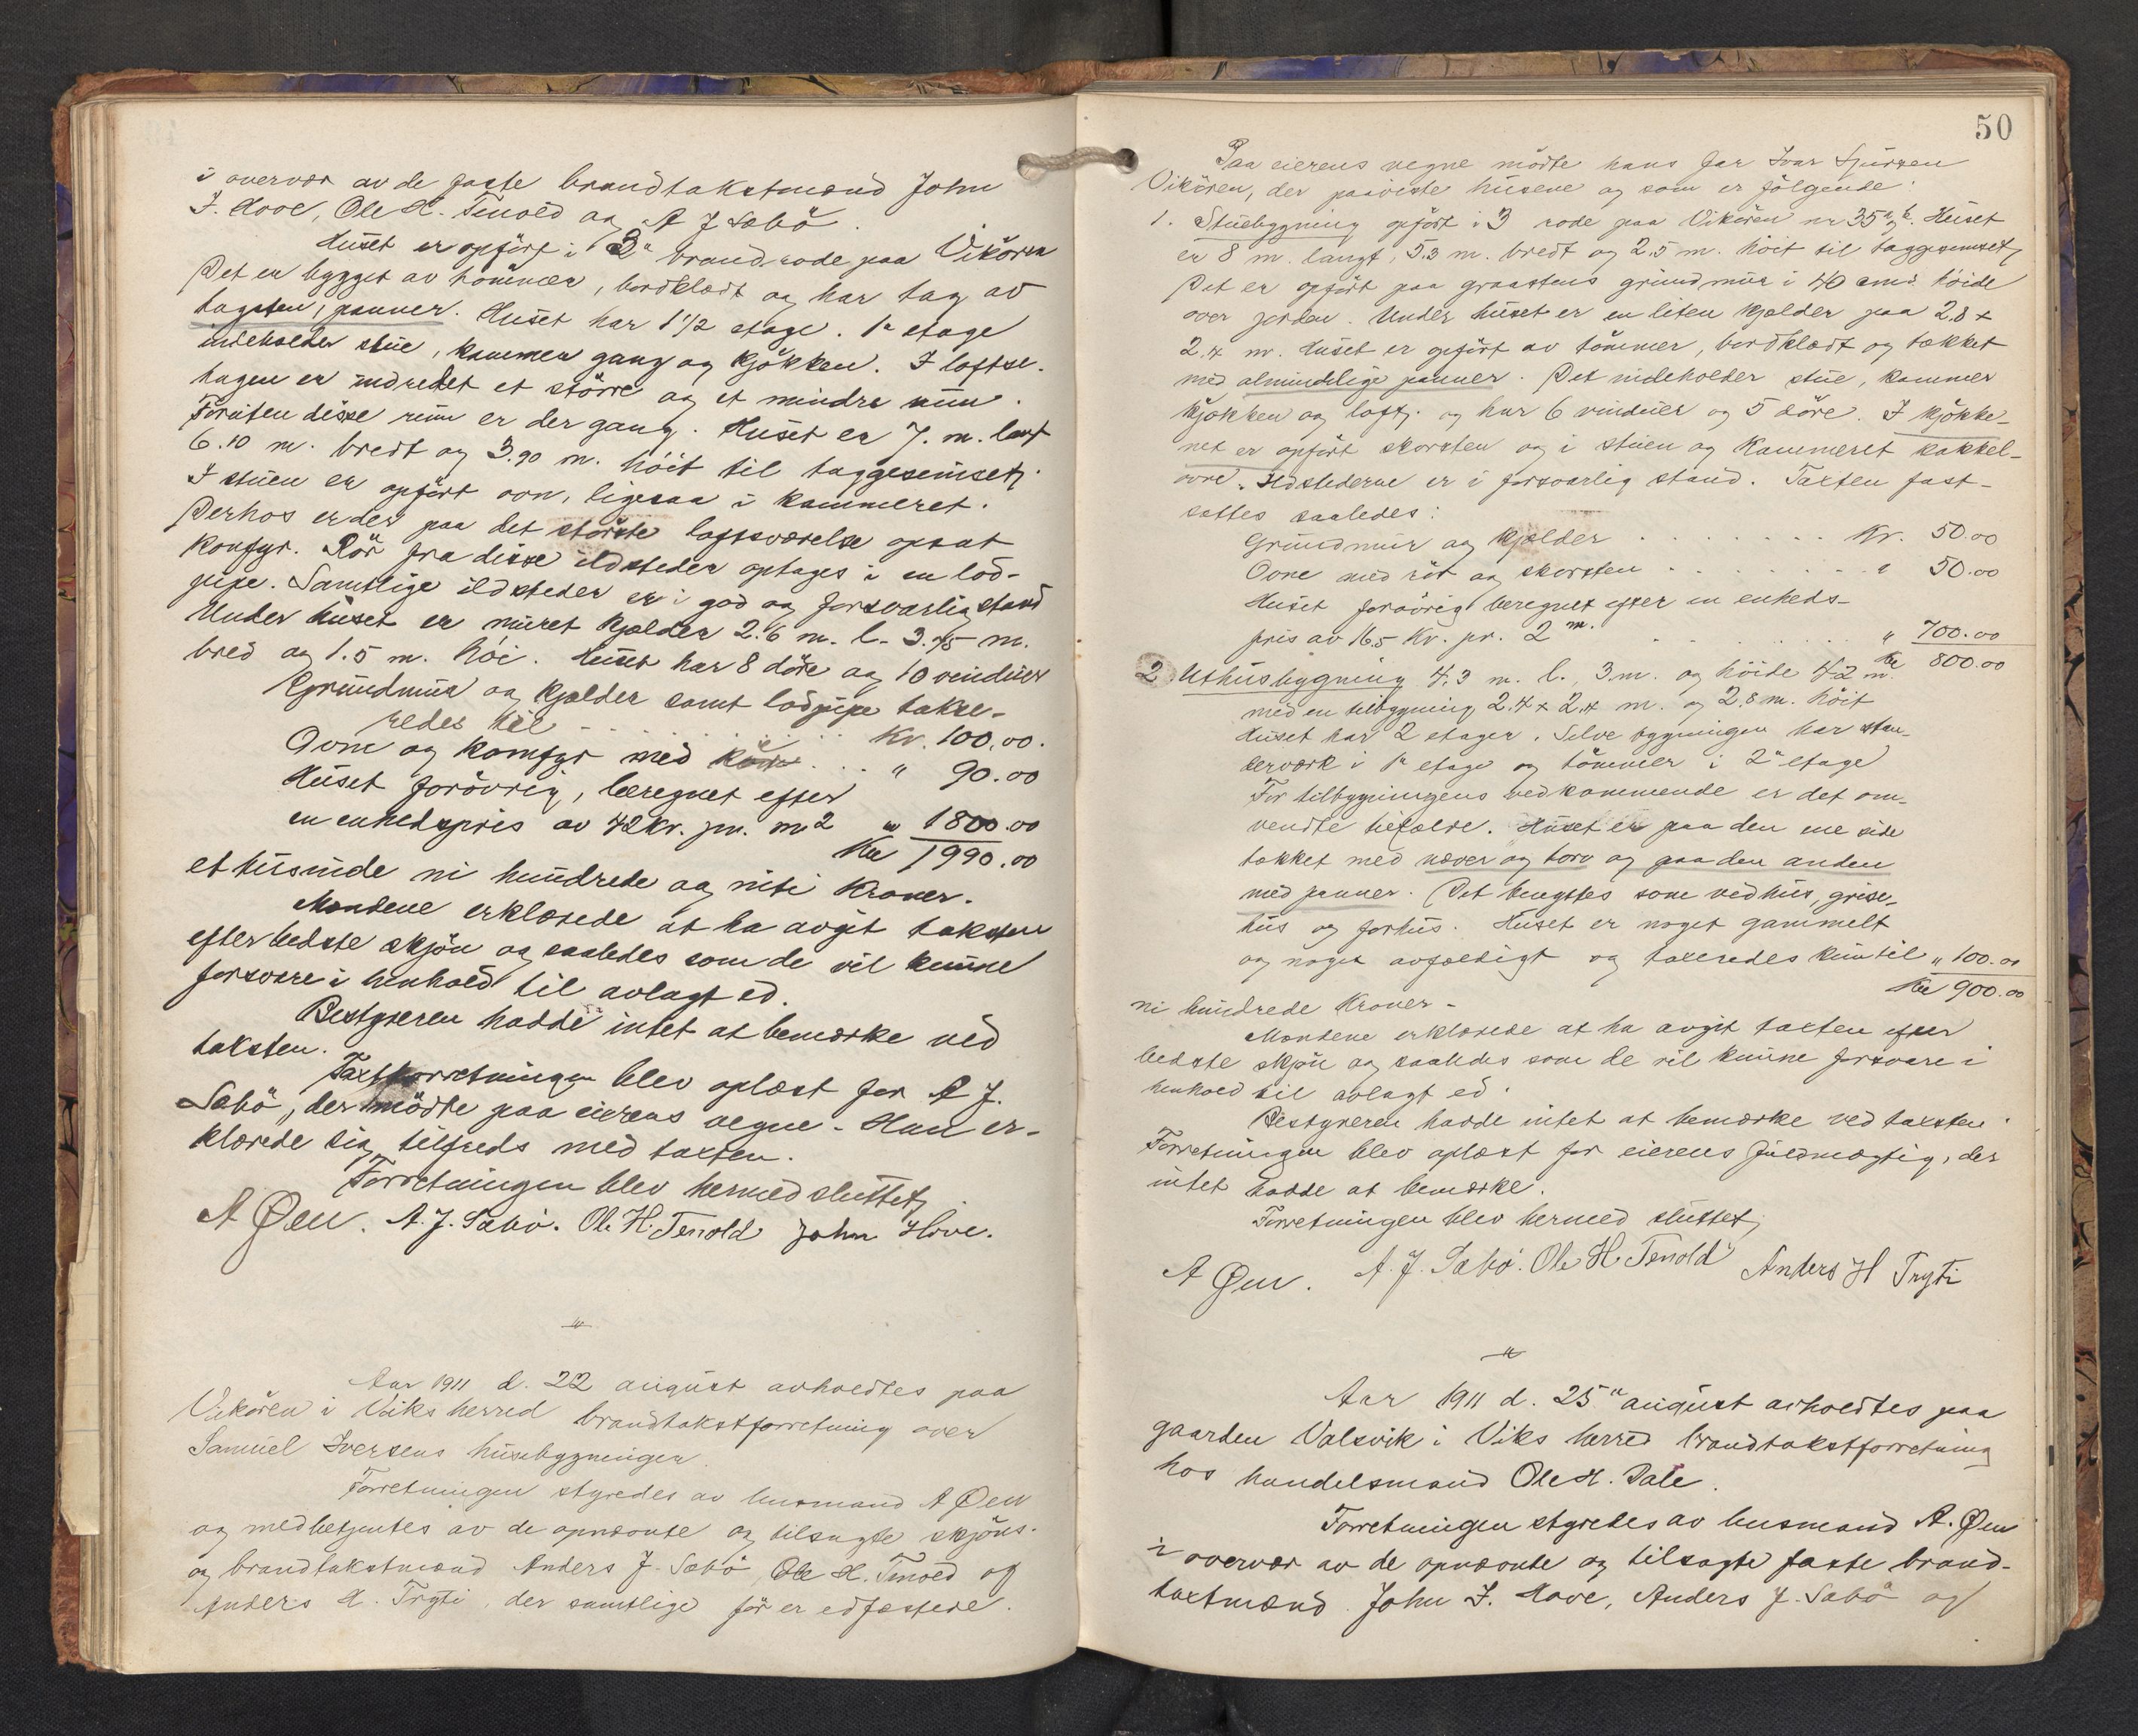 i overvær av de faste brandtakstmænd John
I. Hove, Ole H. Tenold og A J Sæbö.
Huset er opfört i 3n brandrode paa Vikören
Det er bygget av tömmer, bordklædt og har tag av
tagsten, panner. Huset har 1 1/2 etage. 1n etage
indeholder stue, kammer gang og kjökken. I loftse-
tagen er indredet et större og et mindre rum.
Foruten disse rum er der gang. Huset er 7. m. langt
6.10 m. bredt og 3.90 m. höit til taggesimset,
I stuen er opfört ovn, ligesaa i kammeret.
Derhos er der paa det störste loftsværelse opsat
Komfyr. Rör fra disse ildsteder optages i en lod-
pipe. Samtlige ildsteder er i god og forsvarlig stand
Under huset er muret kjælder 2.6 m. l. 3.75 m.
bred og 1.5 m. höi. Huset har 8 döre og 10 vinduer
Grundmur og kjælder samt lodpipe takse-
redes til . . . . . Kr. 100.00.
Ovne og komfyr med . . . " 90.00
Huset forövrig, beregnet efter
en enhedspris av 42 kr. pr. m2 " 1800.00
Kr 1990.00
et tusinde ni hundrede og niti Kroner.
Mændene erklærede at ha avgit taksten
efter bedste skjön og saaledes som de vil kunne
forsvare i henhold til avlagt ed.
Bestyreren hadde intet at bemærke ved
taksten.
Taxtforretningen blev oplæst for A J.
Sæbö, der mödte paa eierens vegne. Han er-
klærede sig tilfreds med taxten.
Forretningen blev hermed sluttet,
A Øen. A. J. Sæbö. Ole H. Tenold John Hove.
"
Aar 1911 d. 22 august avholdtes paa
Vikören i Viks herred brandtakstforretning over
Samuel Iversens husebygninger.
Forretningen styredes av lensmand A Øen
og medbetjentes av de opnævnte og tilsagte skjöns-
og brandtakstmænd Anders J. Sæbö, Ole H. Tenold og
Anders H. Trytti, der samtlige för er edfæstede.
50
Paa eierens vegne mödte hans far Ivar Sjursen
Vikören, der paaviste husene og som er fölgende:
1. Stuebygning opfört i 3 rode paa Vikören nr 35 Huset
er 8 m. langt, 5.3 m. bredt og 2.5 m. höit til taggesimset,
Det er opfört paa graastens grundmur i 40 cms höide
over jorden. Under huset er en liten kjælder paa 2.8 x
2.4 m. Huset er opfört av tömmer, bordklædt og tækket
med almindelige panner. Det indeholder stue, kammer
kjökken og loft, og har 6 vinduer og 5 döre. I kjökke-
net er opfört skorsten og i stuen og kammeret kakkel-
ovne. Ildstederne er i forsvarlig stand. Taxten fast-
sattes saaledes:
Grundmur og kjælder . . . . . . . Kr. 50.00
Ovne med rör og skorsten . . . . . . " 50.00
Huset forövrig beregnet efter en enheds-
pris av 16.5 Kr. pr. 2 m. . . . . . " 700.00
Kr 800.00
2. Uthusbygning 4.3 m. l., 3 m. og höide 4.2 m.
med en tilbygning 2.4 x 2.4 m. og 2.8 m. höit
Huset har 2 etager. Selve bygningen har stan-
derværk i 1n etage og tömmer i 2n etage
For tilbygningens vedkommende er det om-
vendte tilfælde. Huset er paa den ene side
tækket med næver og torv og paa den anden
med panner. Det benyttes som vedhus, grise-
hus og forhus. Huset er noget gammelt
og noget avfældigt og taxeredes kun til " 100.00
Kr 900.00
ni hundrede Kroner.
Mændene erklærede at ha avgit taxten efter
bedste skjön og saaledes som de vil kunne forsvare i
henhold til avlagt ed.
Bestyreren hadde intet at bemærke ved taxsten.
Forretningen blev oplæst for eierens fuldmægtig, der
intet hadde at bemærke.
Forretningen blev hermed sluttet,
A Øen. A. J. Sæbö. Ole H. Tenold Anders H Tryti
"
Aar 1911 d. 25n august avholdtes paa
gaarden Valsvik i Viks herred brandtakstforretning
hos handelsmand Ole H. Dale.
Forretningen styredes av lensmand A. Øen
i overvær av de opnævnte og tilsagte faste brand-
taxtmænd John I. Hove, Anders J. Sæbö og